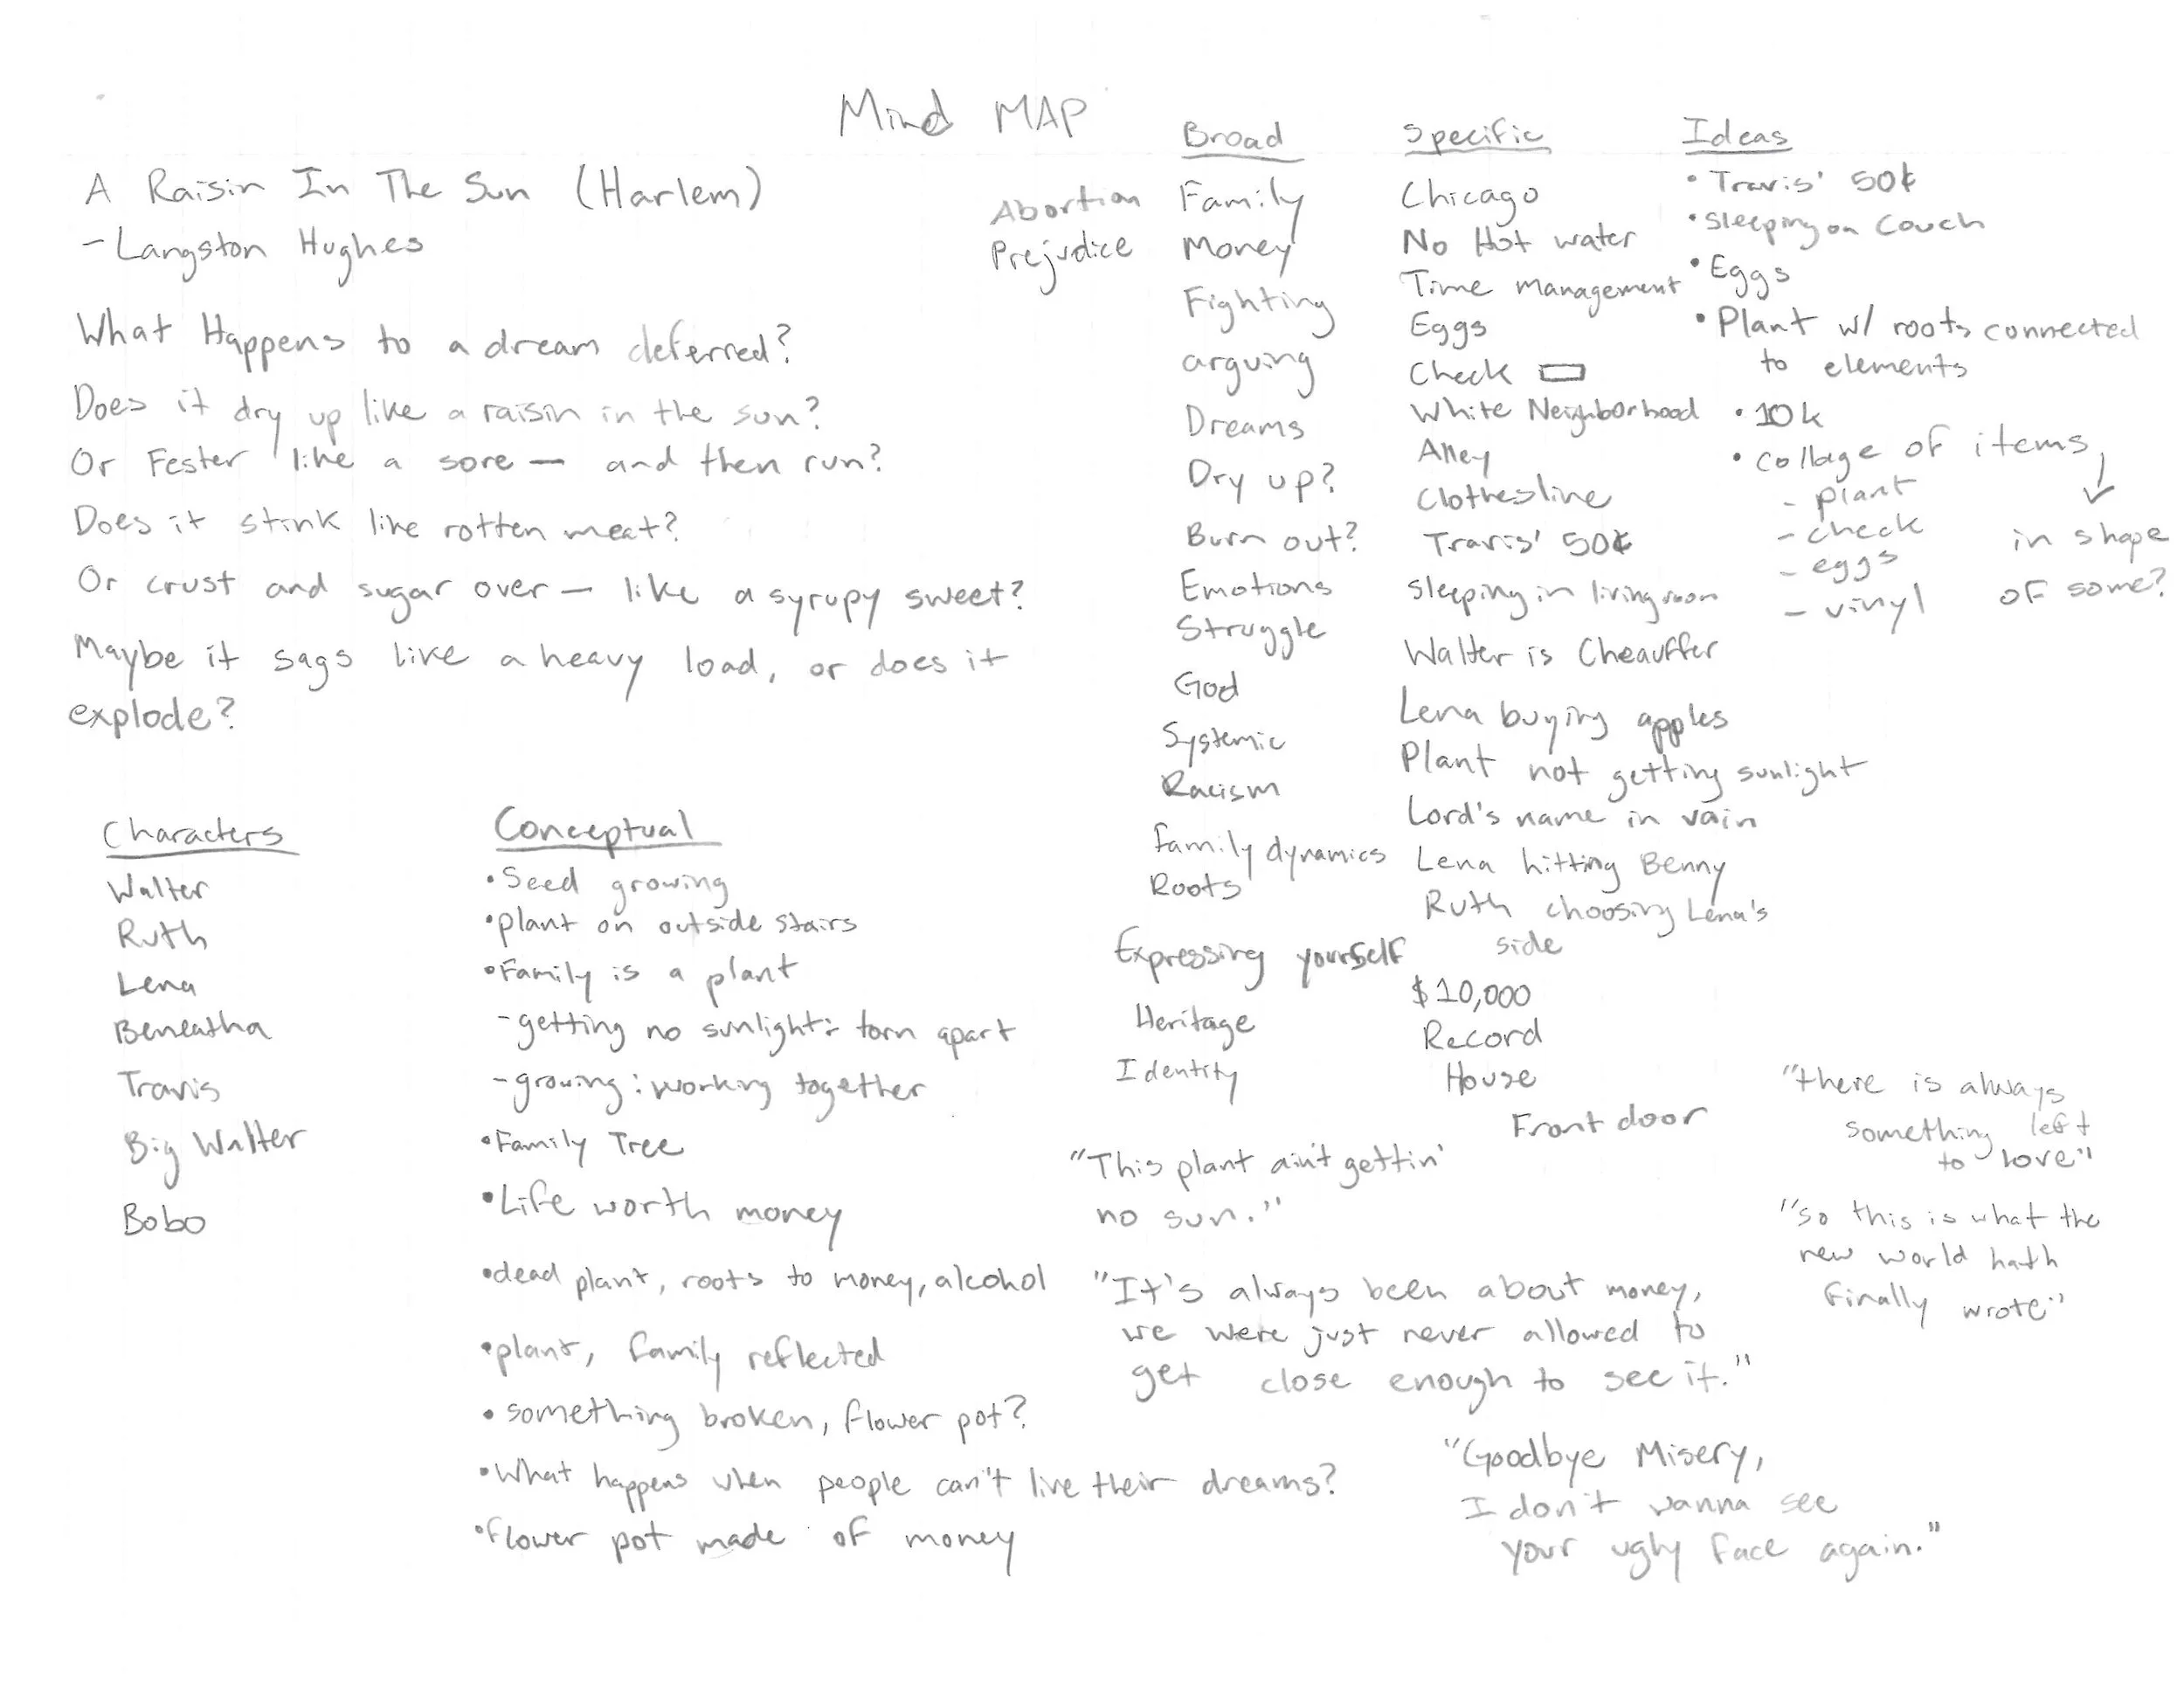 Mind MAP
A Raisin In The Sun (Harlem)
- Langston Hughes
What Happens to a dream deferred?
Does it dry up like a raisin in the sun?
Or Fester like a sore — and then run?
Does it stink like rotten meat?
Or crust and sugar over — like a syrupy sweet?
Maybe it sags like a heavy load, or does it
explode?
Characters
Walter
Ruth
Lena
Beneatha
Travis
Big Walter
Bobo
Conceptual
• Seed growing
• plant on outside stairs
• Family is a plant
- getting no sunlight: torn apart
- growing: working together
• Family Tree
• Life worth money
• dead plant, roots to money, alcohol
• plant, family reflected
• something broken, flower pot?
• What happens when people can't live their dreams?
• flower pot made of money
Abortion
Prejudice
Broad
Family
Money
Fighting
arguing
Dreams
Dry up?
Burn out?
Emotions
Struggle
God
Systemic
Racism
family dynamics
Roots
Expressing yourself
Heritage
Identity
Specific
Chicago
No Hot water
Time management
Eggs
Check
White Neighborhood
Alley
Clothesline
Travis' 50¢
sleeping in living room
Walter is Cheauffer
Lena buying apples
Plant not getting sunlight
Lord's name in vain
Lena hitting Benny
Ruth choosing Lena's
side
$10,000
Record
House
Front door
Ideas
• Travis' 50¢
• sleeping on couch
• Eggs
• Plant w/ roots connected
to elements
• 10k
• collage of items
- plant
- check
- eggs
- vinyl
in shape
of some?
"This plant ain't gettin'
no sun."
"It's always been about money,
we were just never allowed to
get close enough to see it."
"Goodbye Misery,
I don't wanna see
your ugly face again."
"there is always
something left
to love"
"so this is what the
new world hath
finally wrote"